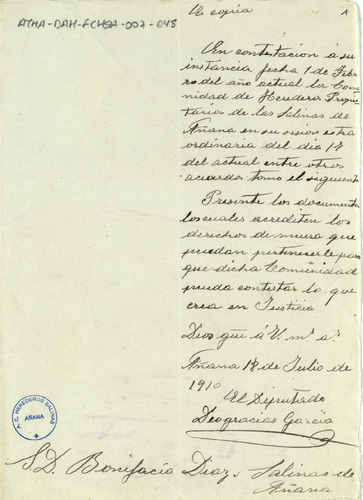 Es copia
1
ATHA-DAH-FCHSA-007-048
En contestacion á su
instancia fecha 1 de Febre
ro del año actual la Comu
nidad de Herederos Propie
tarios de las Salinas de
Añana en su sesion estra
ordinaria del dia 17
del actual entre otros
acuerdos tomo el siguiente
Presente los documentos
los cuales acrediten los
derechos de muera que
puedan pertenecerle para
que dicha Comuñidad
pueda contestar lo que
crea en Justicia
Dios gue á V. m.s a.s
Añana 18 de Julio de
1910
El Diputado
Deogracias Garcia
A.C. HEREDEROS SALINAS
AÑANA
S.D. Bonifacio Diaz: Salinas de
Añana